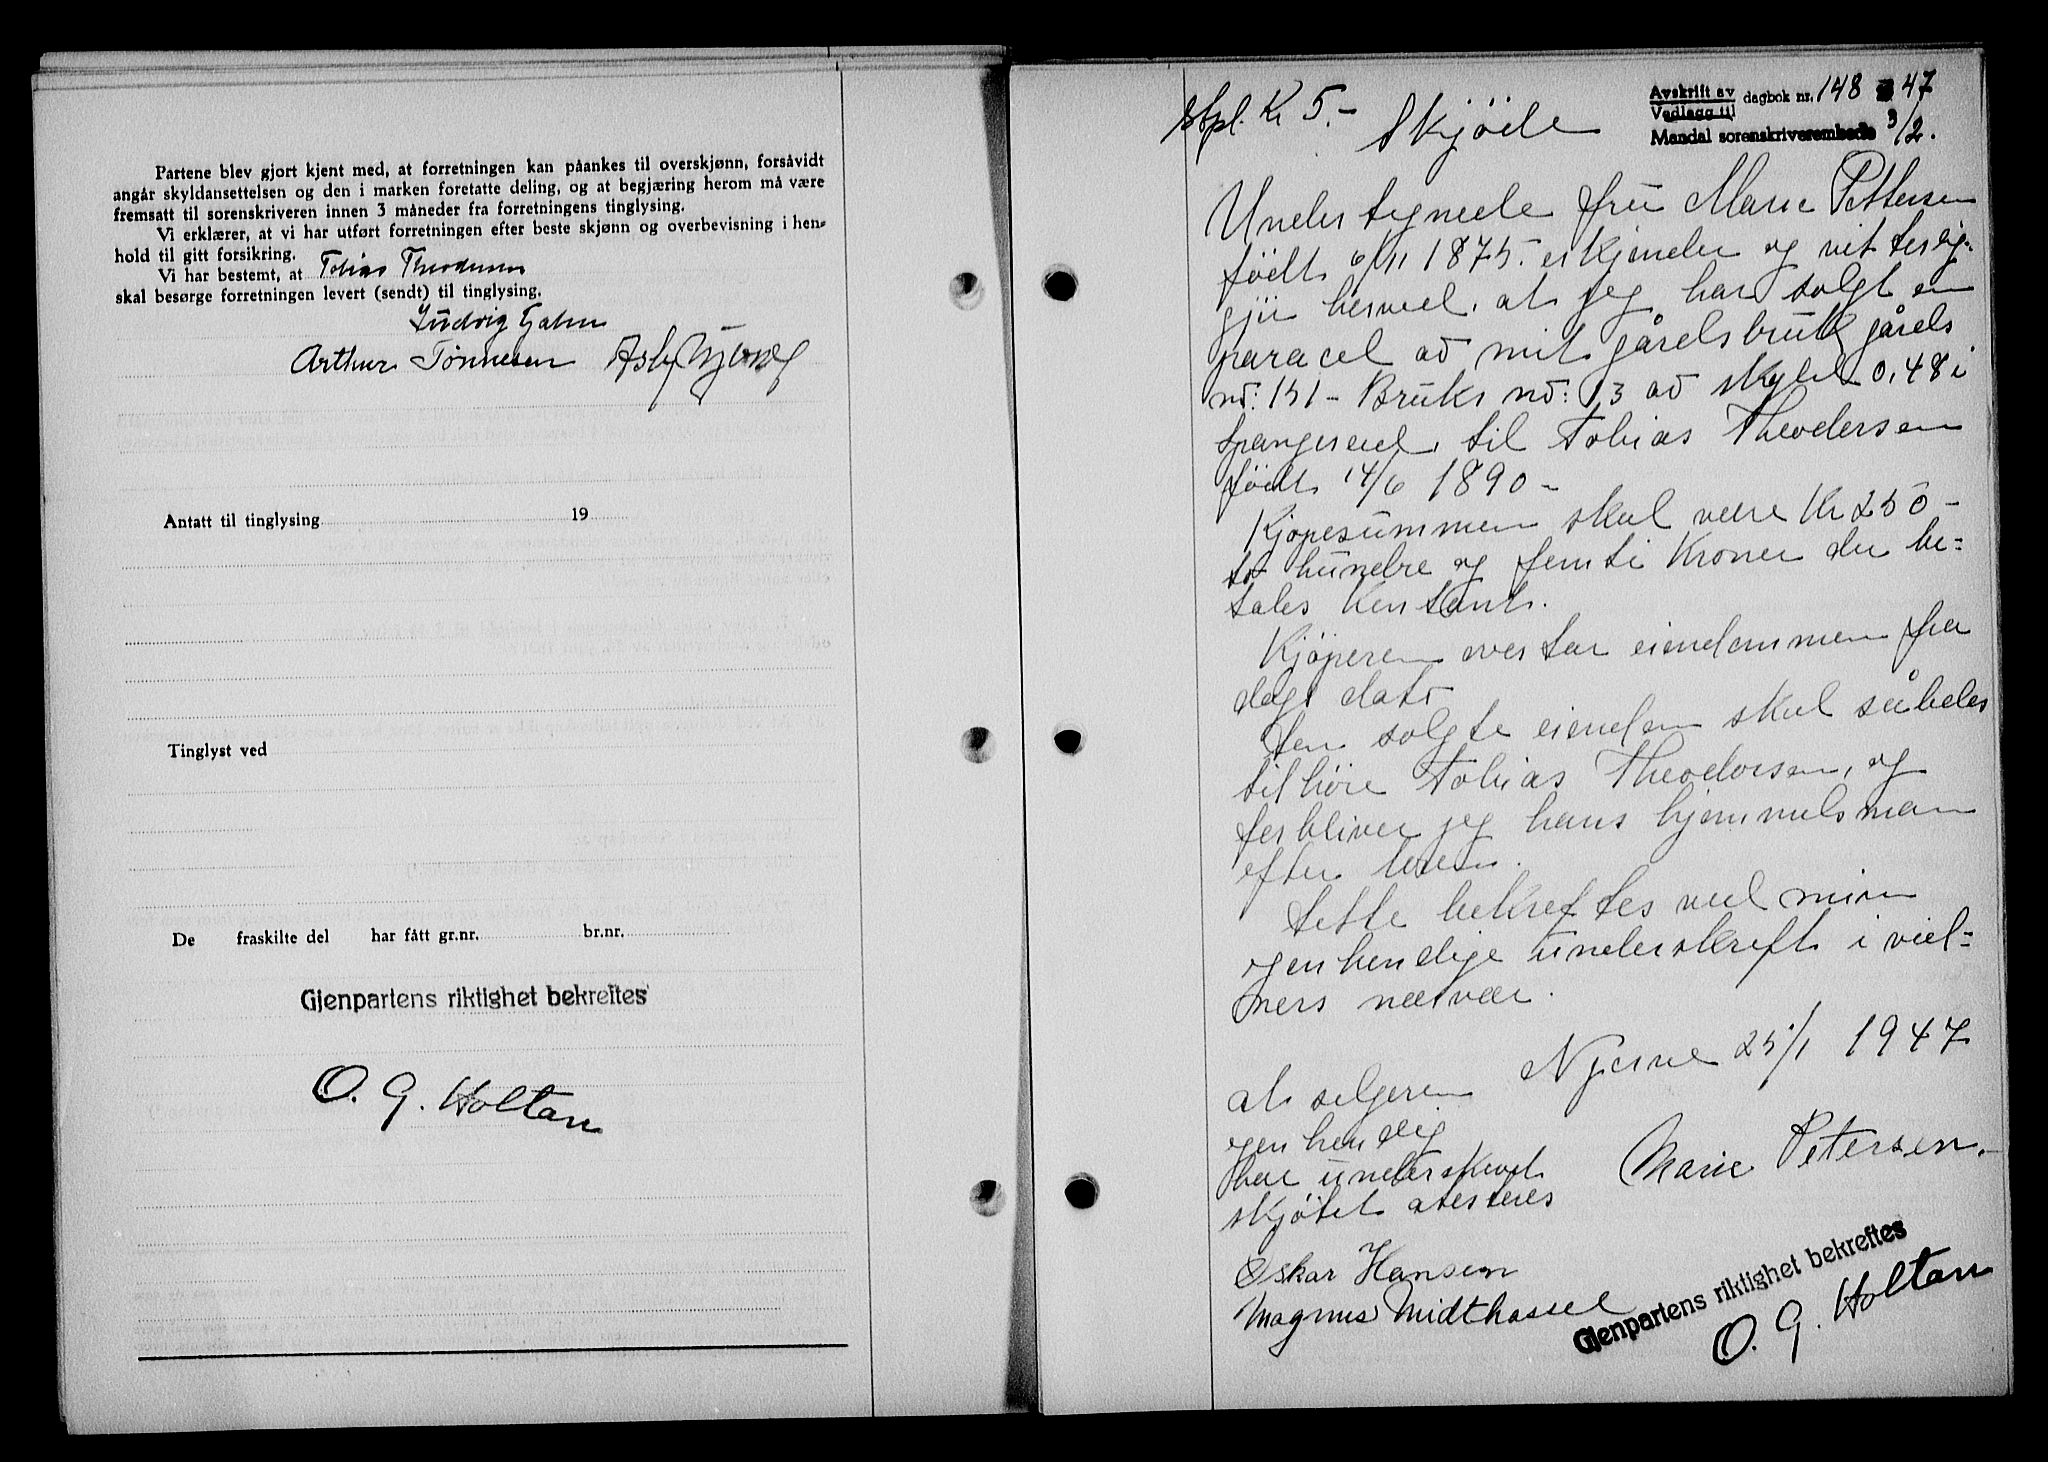 Partene blev gjort kjent med, at forretningen kan påankes til overskjønn, forsåvidt
angår skyldansettelsen og den i marken foretatte deling, og at begjæring herom må være
fremsatt til sorenskriveren innen 3 måneder fra forretningens tinglysing.
Vi erklærer, at vi har utført forretningen efter beste skjønn og overbevisning i hen-
hold til gitt forsikring.
Vi har bestemt, at Tobias Theodersen
skal besørge forretningen levert (sendt) til tinglysing.
Ludvig
Arthur Tønnesen
Antatt til tinglysing 19
Tinglyst ved
De fraskilte del har fått gr.nr. br.nr.
Gjenpartens riktighet bekreftes
O. G. Holtan
Stpl. Kr 5.-
Avskrift av
Vedlagg til
dagbok nr. 148 47
Mandal sorenskriverembede 3/2.
Skjöde
Undertegnede frü Marie Pettersen
födt 6/11 1875. erkjender og vitterlig-
gjör herved, at jeg har solgt en
paracel av mit gårdsbruk gårds
no: 151 - Bruks no: 13 av skyld 0,48 i
Spangereid, til Tobias Theodersen
födt 14/6 1890 -
Kjøpesummen skal være Kr 250 -
to hundre og femti Kroner der be-
tales Kontant.
Kjöperen overtar eiendommen fra
dags dato
Den solgte eiendom skal således
tilhöre Tobias Theodorsen, og
forbliver jeg hans hjemmelsman
efter loven.
Dette bekreftes ved min
egenhendige underskrift i vid-
ners nærvær.
Njerve 25/1 1947
Marie Petersen.
at selgeren
egenhendig
har underskrevet
skjötet atesteres
Oskar Hansen
Magnus Midthassel
Gjenpartens riktighet bekreftes
O. G. Holtan